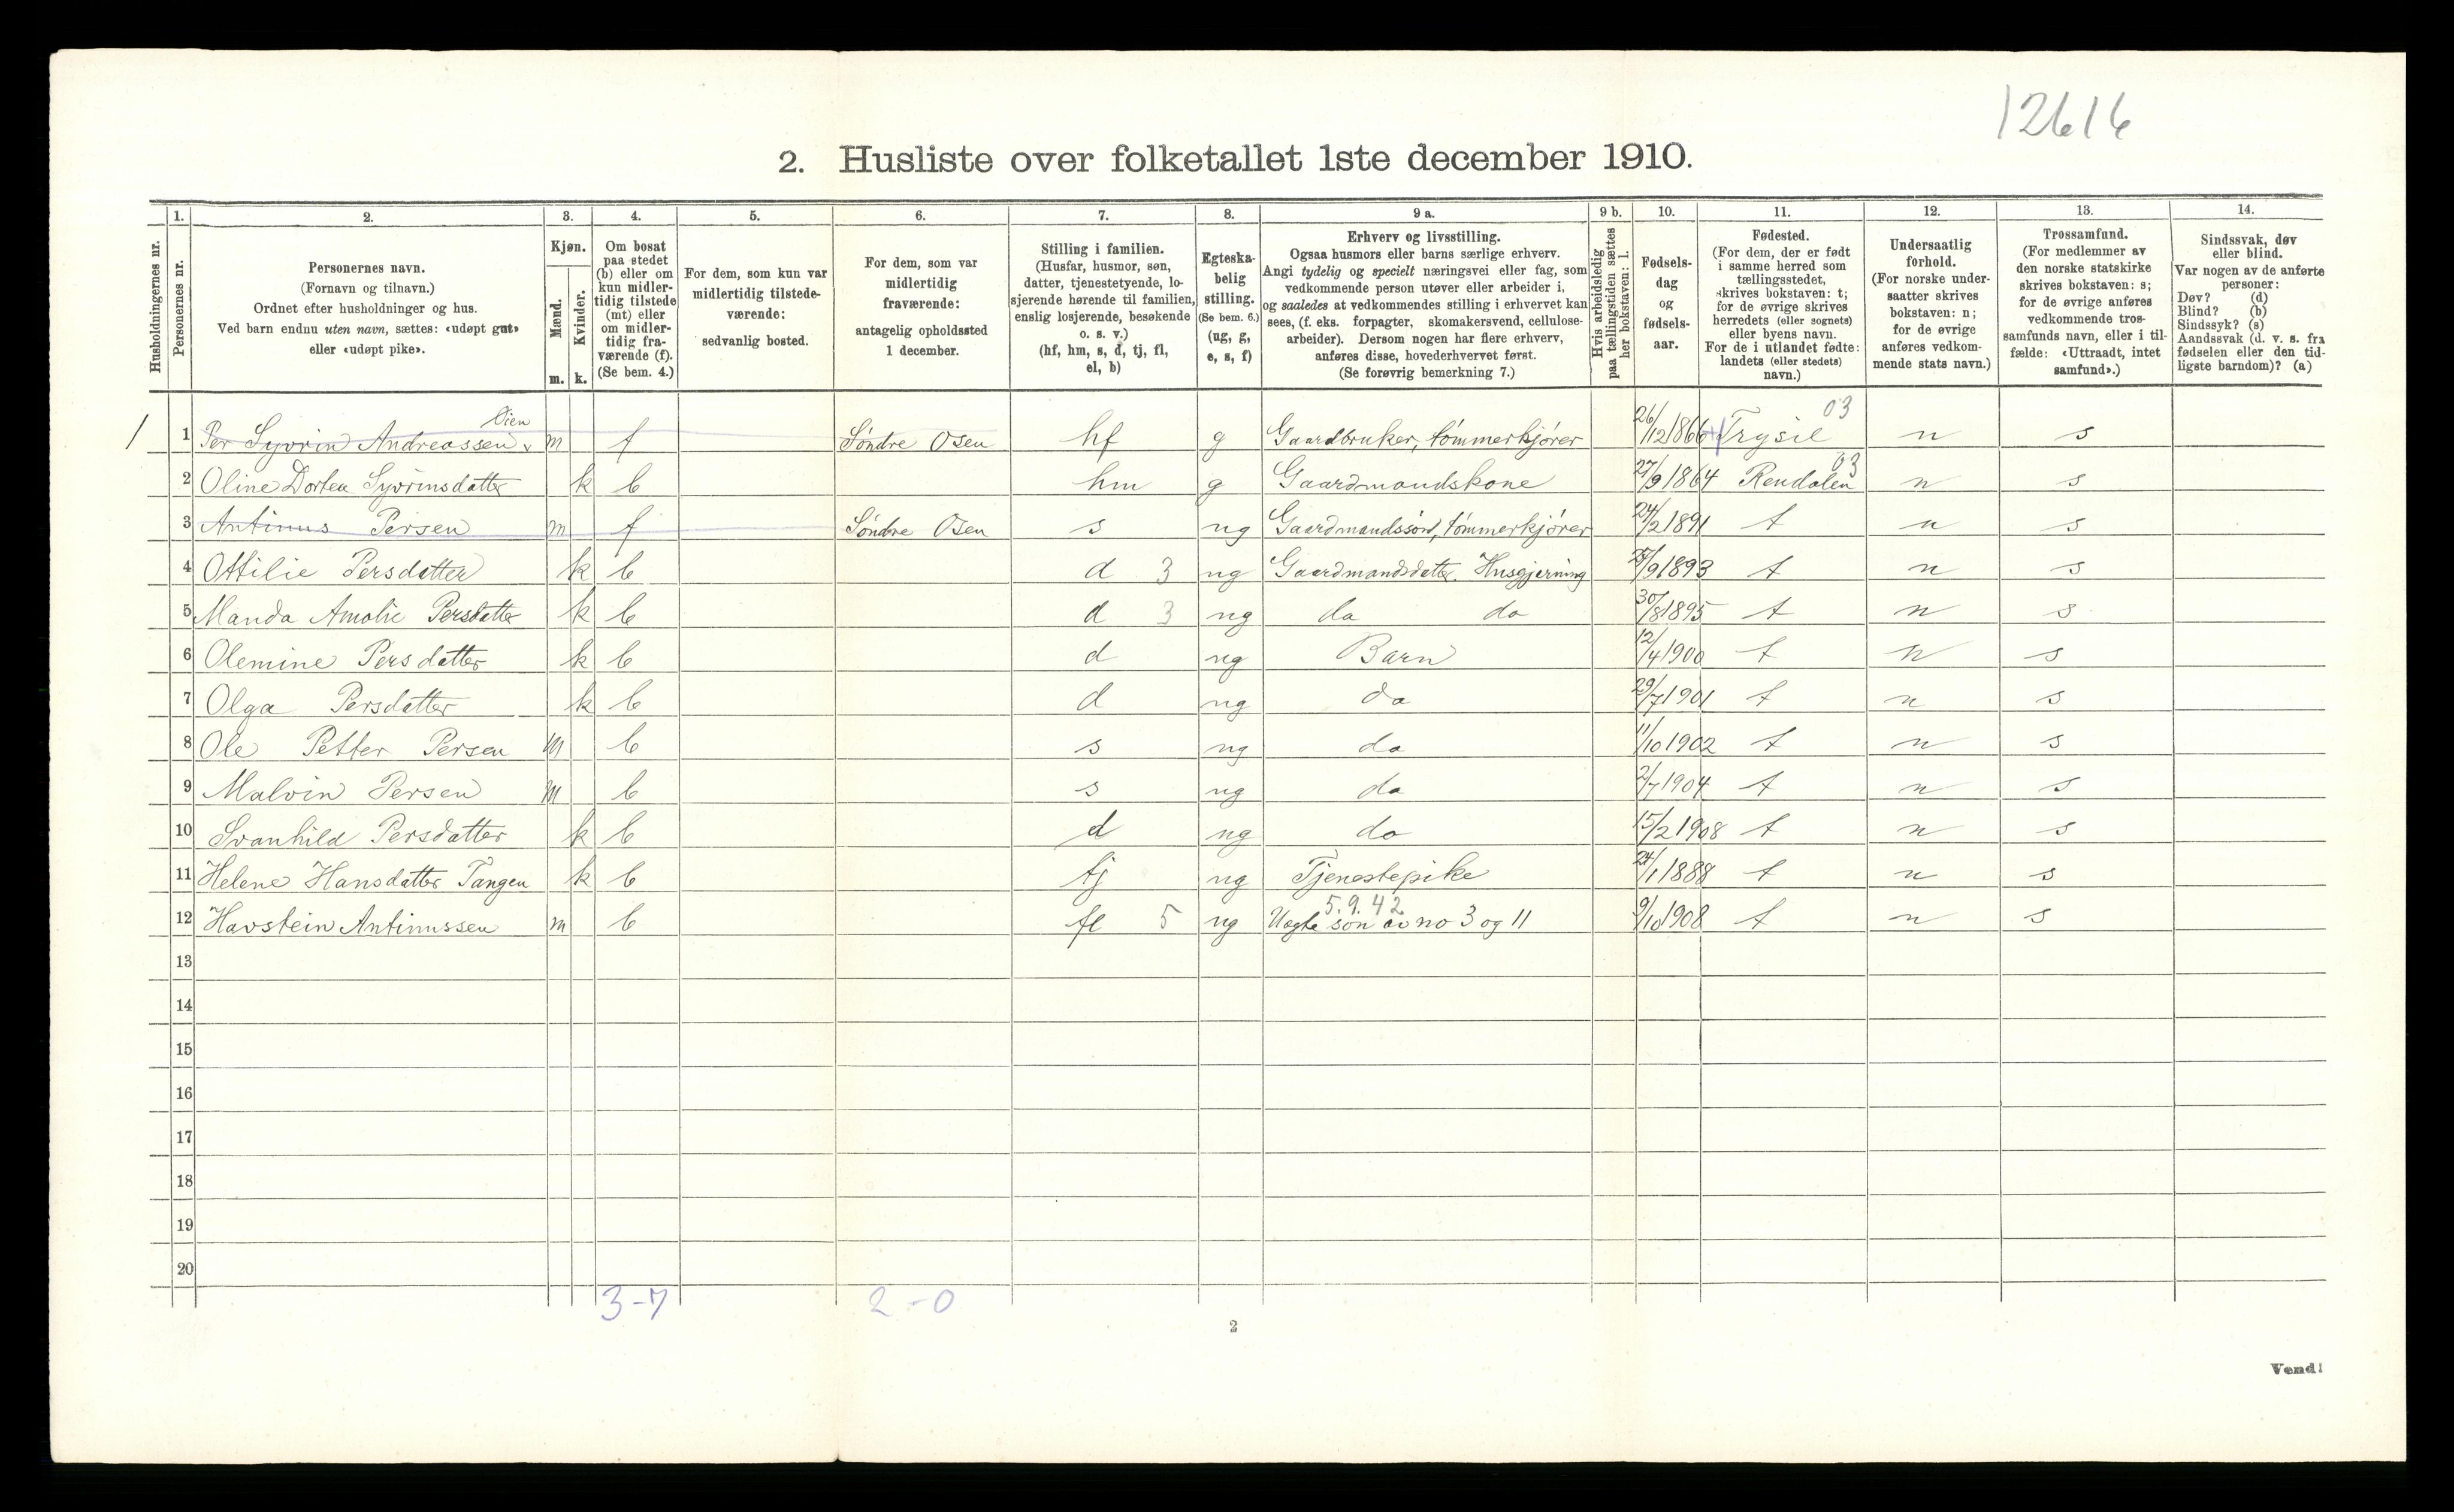 12616
2. Husliste over folketallet 1ste december 1910.
Husholdningernes nr.
1. Personernes nr.
2. Personernes navn. (Fornavn og tilnavn.) Ordnet efter husholdninger og hus. Ved barn endnu uten navn, sættes: «udøpt gut» eller «udøpt pike».
3. Kjøn. Mænd. m. Kvinder. k.
4. Om bosat paa stedet (b) eller om kun midlertidig tilstede (mt) eller om midlertidig fraværende (f). (Se bem. 4.)
5. For dem, som kun var midlertidig tilstedeværende: sedvanlig bosted.
6. For dem, som var midlertidig fraværende: antagelig opholdssted 1 december.
7. Stilling i familien. (Husfar, husmor, søn, datter, tjenestetyende, losjerende hørende til familien, enslig losjerende, besøkende o. s. v.) (hf, hm, s, d, tj, fl, el, b)
8. Egteskabelig stilling. (Se bem. 6.) (ug, g, e, s, f)
9 a. Erhverv og livsstilling. Ogsaa husmors eller barns særlige erhverv. Angi tydelig og specielt næringsvei eller fag, som vedkommende person utøver eller arbeider i, og saaledes at vedkommendes stilling i erhvervet kan sees, (f. eks. forpagter, skomakersvend, cellulosearbeider). Dersom nogen har flere erhverv, anføres disse, hovederhvervet først. (Se forøvrig bemerkning 7.)
9 b. Hvis arbeidsledig paa tællingstiden sættes her bokstaven: l.
10. Fødselsdag og fødselsaar.
11. Fødested. (For dem, der er født i samme herred som tællingsstedet, skrives bokstaven: t; for de øvrige skrives herredets (eller sognets) eller byens navn. For de i utlandet fødte: landets (eller stedets) navn.)
12. Undersaatlig forhold. (For norske undersaatter skrives bokstaven: n; for de øvrige anføres vedkommende stats navn.)
13. Trossamfund. (For medlemmer av den norske statskirke skrives bokstaven: s; for de øvrige anføres vedkommende trossamfunds navn, eller i tilfælde: «Uttraadt, intet samfund».)
14. Sindssvak, døv eller blind. Var nogen av de anførte personer: Døv? (d) Blind? (b) Sindssyk? (s) Aandssvak (d. v. s. fra fødselen eller den tidligste barndom)? (a)
Oien 03
1 1 Per Syvrin Andreassen m f Söndre Osen hf g Gaardbruker, tömmerkjörer 26/12 1866 Trysil n s
03
2 Oline Dortea Syvrinsdatter k b hm g Gaardmandskone 27/9 1864 Rendalen n s
3 Antinus Persen m f Söndre Osen s ug Gaardmandssön, tömmerkjörer 24/2 1891 t n s
4 Ottilie Persdatter k b d 3 ug Gaardmandsdatter. Husgjerning /9 1893 t n s
5 Manda Amalie Persdatter k b d 3 ug do do 30/8 1895 t n s
6 Olemine Persdatter k b d ug Barn 12/4 1900 t n s
7 Olga Persdatter k b d ug do 29/7 1901 t n s
8 Ole Petter Persen m b s ug do 11/10 1902 t n s
9 Malvin Persen m b s ug do 2/7 1904 t n s
10 Svanhild Persdatter k b d ug do 15/2 1908 t n s
11 Helene Hansdatter Tangen k b tj ug Tjenestepike 24/1 1888 t n s
5.9.42
12 Havstein Antinussen m b fl 5 ug Uegte sön av no 3 og 11 9/10 1908 t n s
13
14
15
16
17
18
19
20
3-7 2-0
2
Vend!